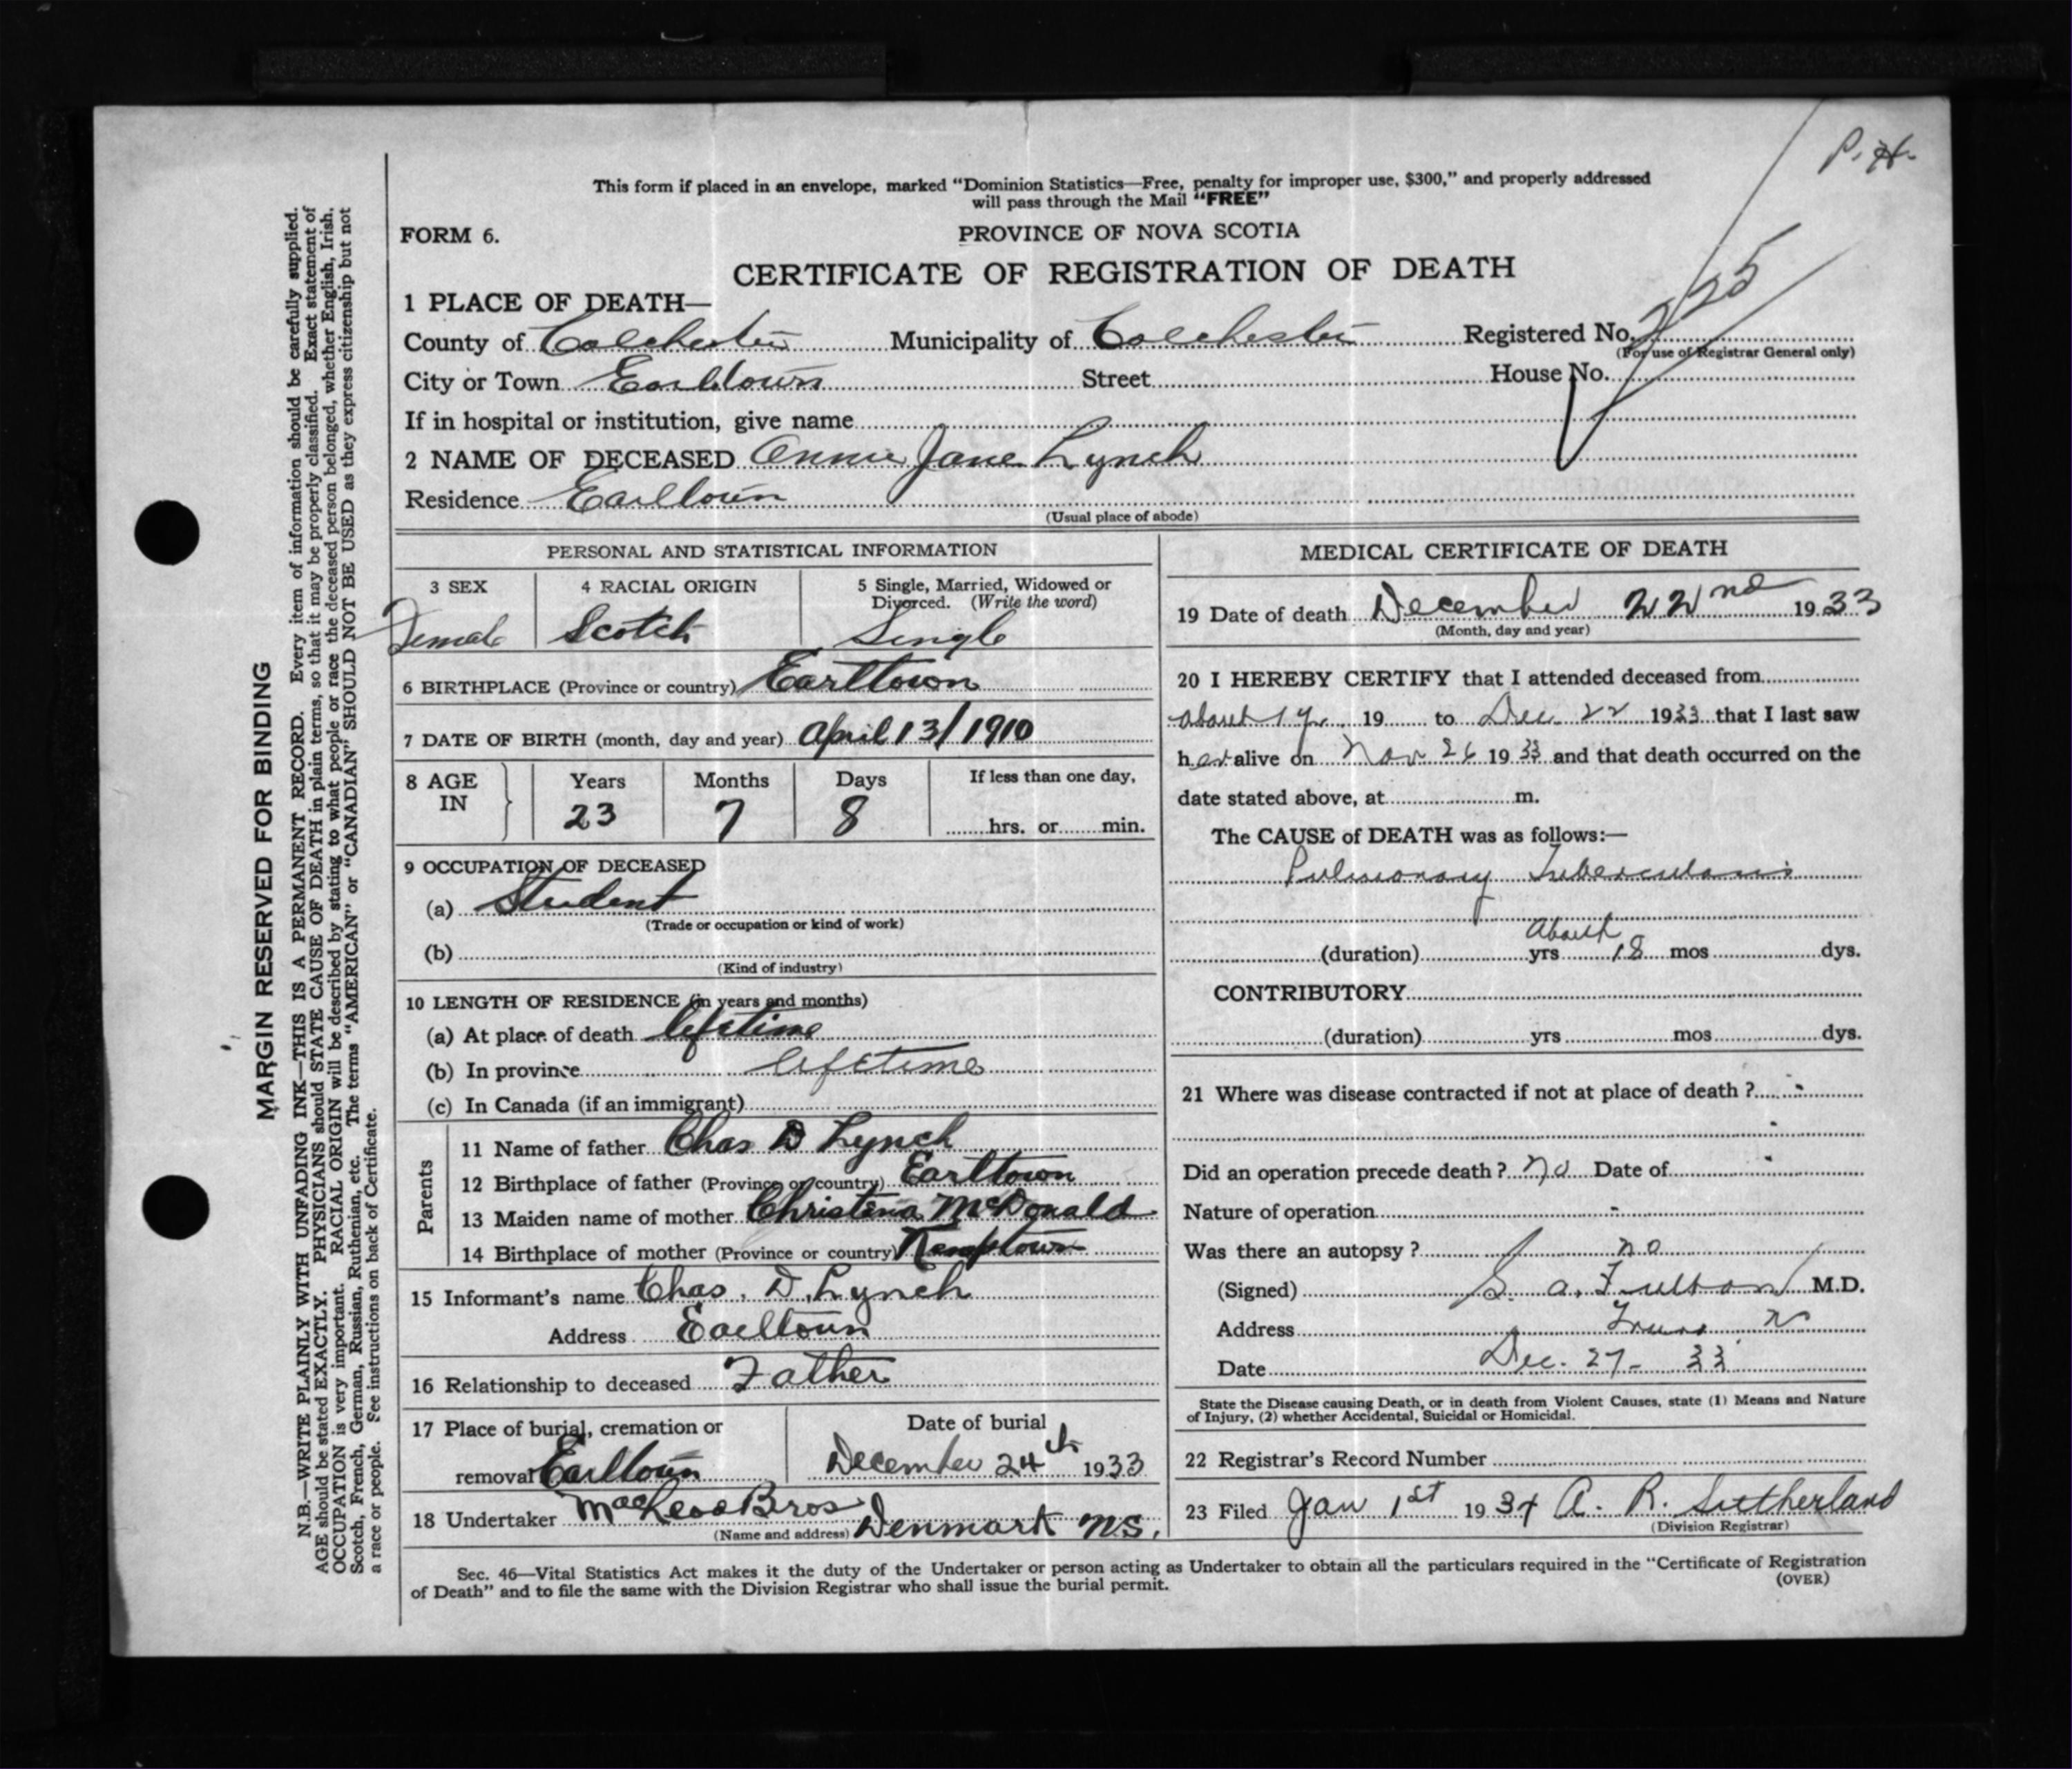 P. H.
This form if placed in an envelope, marked "Dominion Statistics—Free, penalty for improper use, $300," and properly addressed
will pass through the Mail "FREE"
FORM 6.
PROVINCE OF NOVA SCOTIA
CERTIFICATE OF REGISTRATION OF DEATH
1 PLACE OF DEATH—
County of Colchester Municipality of Colchester Registered No. 225
(For use of Registrar General only)
City or Town Earltown Street House No.
If in hospital or institution, give name
2 NAME OF DECEASED Annie Jane Lynch
Residence Earltown
(Usual place of abode)
PERSONAL AND STATISTICAL INFORMATION
3 SEX 4 RACIAL ORIGIN 5 Single, Married, Widowed or
Divorced. (Write the word)
Female Scotch Single
6 BIRTHPLACE (Province or country) Earltown
7 DATE OF BIRTH (month, day and year) April 13/1910
8 AGE IN Years Months Days If less than one day,
23 7 8 hrs. or min.
9 OCCUPATION OF DECEASED
(a) Student
(Trade or occupation or kind of work)
(b)
(Kind of industry)
10 LENGTH OF RESIDENCE (in years and months)
(a) At place of death lifetime
(b) In province lifetime
(c) In Canada (if an immigrant)
Parents
11 Name of father Chas D Lynch
12 Birthplace of father (Province or country) Earltown
13 Maiden name of mother Christena McDonald
14 Birthplace of mother (Province or country) Kemptown
15 Informant's name Chas. D. Lynch
Address Earltown
16 Relationship to deceased Father
17 Place of burial, cremation or Date of burial
removal Earltown December 24th 1933
18 Undertaker MacLeod Bros
(Name and address) Denmark NS.
MEDICAL CERTIFICATE OF DEATH
19 Date of death December 22nd 1933
(Month, day and year)
20 I HEREBY CERTIFY that I attended deceased from
about 1 yr 19 to Dec 22 1933 that I last saw
her alive on Nov 26 1933 and that death occurred on the
date stated above, at m.
The CAUSE of DEATH was as follows:—
Pulmonary Tuberculosis
About
(duration) yrs 18 mos dys.
CONTRIBUTORY
(duration) yrs mos dys.
21 Where was disease contracted if not at place of death ?
Did an operation precede death ? No Date of
Nature of operation -
Was there an autopsy ? no
(Signed) S. A. Fulton M.D.
Address Truro N
Date Dec. 27- 33
State the Disease causing Death, or in death from Violent Causes, state (1) Means and Nature
of Injury, (2) whether Accidental, Suicidal or Homicidal.
22 Registrar's Record Number
23 Filed Jan 1st 1934 A. R. Sutherland
(Division Registrar)
Sec. 46—Vital Statistics Act makes it the duty of the Undertaker or person acting as Undertaker to obtain all the particulars required in the "Certificate of Registration
of Death" and to file the same with the Division Registrar who shall issue the burial permit.
(OVER)
MARGIN RESERVED FOR BINDING
N.B.—WRITE PLAINLY WITH UNFADING INK—THIS IS A PERMANENT RECORD. Every item of information should be carefully supplied.
AGE should be stated EXACTLY. PHYSICIANS should STATE CAUSE OF DEATH in plain terms, so that it may be properly classified. Exact statement of
OCCUPATION is very important. RACIAL ORIGIN will be described by stating to what people or race the deceased person belonged, whether English, Irish,
Scotch, French, German, Russian, Ruthenian, etc. The terms "AMERICAN" or "CANADIAN" SHOULD NOT BE USED as they express citizenship but not
a race or people. See instructions on back of Certificate.